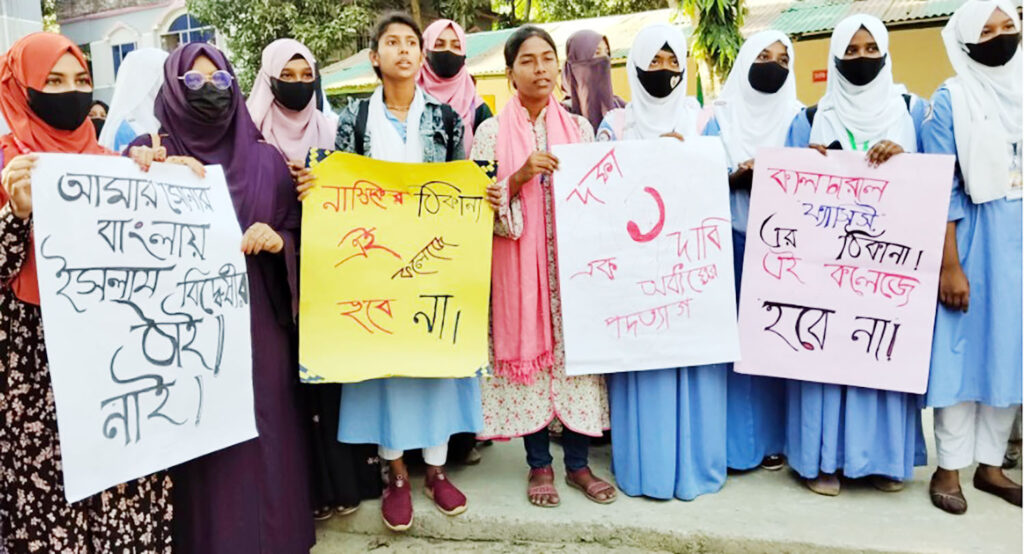 আমার সোনার
বাংলায়
ইসলাম বিদ্বেষীর
ঠাঁই
নাই।
নাস্তিকের ঠিকানা
এই কলেজে
হবে না।
দফা ১
এক দাবি
অধ্যক্ষের
পদত্যাগ
কালচারাল
ফ্যাসিস্ট
এর ঠিকানা।
এই কলেজে
হবে না।